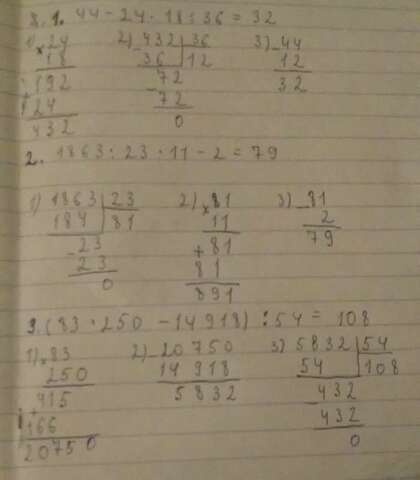 3. 1. 44 - 24 · 18 : 36 = 32
1) ×24 2) -432 | 36 3) -44
18 36 | 12 12
+192 -72 32
24 72
432 0
2. 1863 : 23 · 11 - 2 = 79
1) 1863 | 23 2) ×81 3) -81
184 | 81 11 2
-23 +81 79
23 81
0 891
3. (83 · 250 - 14918) : 54 = 108
1) ×83 2) -20750 3) 5832 | 54
250 14918 54 | 108
+415 5832 -432
166 432
20750 0